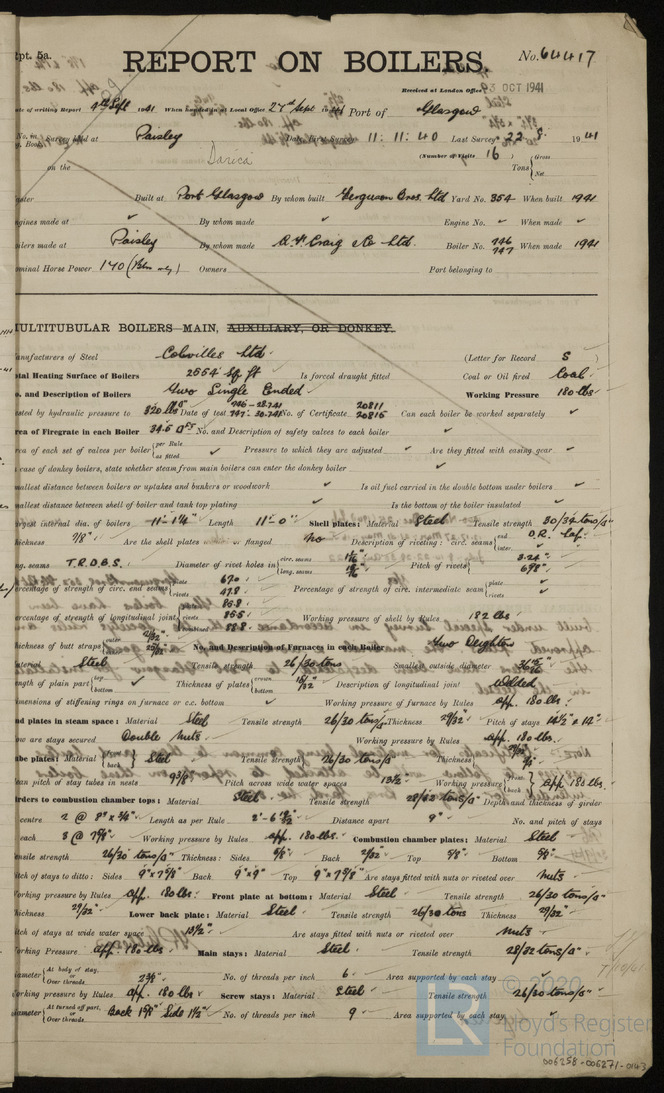 Rpt. 5a.
REPORT ON BOILERS.
No. 64417
Received at London Office 3 OCT 1941
ate of writing Report 9th Sept 1941 When handed in at Local Office 27th Sept 1941 Port of Glasgow
No. in Survey held at Paisley Date, First Survey 11:11:40 Last Survey 22 8 1941
g. Book.
(Number of Visits 16)
on the Darica Tons { Gross Net
aster Built at Port Glasgow By whom built Ferguson Bros. Ltd Yard No. 354 When built 1941
ngines made at ✓ By whom made ✓ Engine No. ✓ When made ✓
oilers made at Paisley By whom made A. F. Craig & Co Ltd. Boiler No. 746 747 When made 1941
ominal Horse Power 140 Owners Port belonging to
MULTITUBULAR BOILERS MAIN, AUXILIARY, OR DONKEY.
anufacturers of Steel Colvilles Ltd (Letter for Record S)
otal Heating Surface of Boilers 2554 Sq ft Is forced draught fitted Coal or Oil fired Coal.
o. and Description of Boilers Two Single Ended Working Pressure 180 lbs
ested by hydraulic pressure to 320 lbs Date of test 746-28.7.41 747-30.7.41 No. of Certificate 20811 20815 Can each boiler be worked separately ✓
rea of Firegrate in each Boiler 34.5 No. and Description of safety valves to each boiler
rea of each set of valves per boiler { per Rule as fitted ✓ Pressure to which they are adjusted ✓ Are they fitted with easing gear ✓
case of donkey boilers, state whether steam from main boilers can enter the donkey boiler ✓
mallest distance between boilers or uptakes and bunkers or woodwork Is oil fuel carried in the double bottom under boilers ✓
mallest distance between shell of boiler and tank top plating ✓ Is the bottom of the boiler insulated ✓
argest internal dia. of boilers 11'-1¼" Length 11'-0" Shell plates: Material Steel Tensile strength 30/34 tons/□"
hickness 7/8" Are the shell plates welded or flanged No Description of riveting: circ. seams { end O.R. Lap. inter.
ng. seams T.R.D.B.S. Diameter of rivet holes in { circ. seams long. seams Pitch of rivets { 3.24" 6 7/8"
ercentage of strength of circ. end seams { plate 67.0 rivets 47.8 Percentage of strength of circ. intermediate seam { plate rivets
ercentage of strength of longitudinal joint { plate 85.8 rivets 85.5 combined 88.8 Working pressure of shell by Rules 182 lbs
hickness of butt straps { outer inner No. and Description of Furnaces in each Boiler Two Deighton
aterial Steel Tensile strength 26/30 tons Smallest outside diameter
ength of plain part { top bottom Thickness of plates { crown bottom Description of longitudinal joint Welded
imensions of stiffening rings on furnace or c.c. bottom ✓ Working pressure of furnace by Rules app. 180 lbs.
nd plates in steam space: Material Steel Tensile strength 26/30 tons/□" Thickness 29/32" Pitch of stays 14½" x 14"
ow are stays secured Double Nuts Working pressure by Rules app. 180 lbs.
ube plates: Material { front back Steel Tensile strength 26/30 tons/□ Thickness {
ean pitch of stay tubes in nests 9 3/8" Pitch across wide water spaces 13½" Working pressure { front back app 180 lbs.
irders to combustion chamber tops: Material Steel Tensile strength 28/32 tons/□" Depth and thickness of girder
centre 2 @ 8" x ¾" Length as per Rule Distance apart 9" No. and pitch of stays
each 3 @ 7 5/8" Working pressure by Rules app. 180 lbs. Combustion chamber plates: Material Steel
ensile strength 26/30 tons/□" Thickness: Sides 5/8" Back 21/32" Top 5/8" Bottom 5/8"
itch of stays to ditto: Sides 9" x 7 5/8" Back 9" x 9" Top 9" x 7 5/8" Are stays fitted with nuts or riveted over Nuts
orking pressure by Rules app. 180 lbs Front plate at bottom: Material Steel Tensile strength 26/30 tons/□"
hickness 29/32" Lower back plate: Material Steel Tensile strength 26/30 tons Thickness 29/32"
itch of stays at wide water space 13½" Are stays fitted with nuts or riveted over Nuts
orking Pressure app. 180 lbs Main stays: Material Steel Tensile strength 28/32 tons/□"
iameter { At body of stay, Over threads. 2 3/8" No. of threads per inch 6 Area supported by each stay
orking pressure by Rules app. 180 lbs Screw stays: Material Steel Tensile strength 26/30 tons/□"
iameter { At turned off part, Over threads. Back 1 5/8" Side 1½" No. of threads per inch 9 Area supported by each stay ✓
© 2020
Lloyd's Register
Foundation
006258-006271-0143